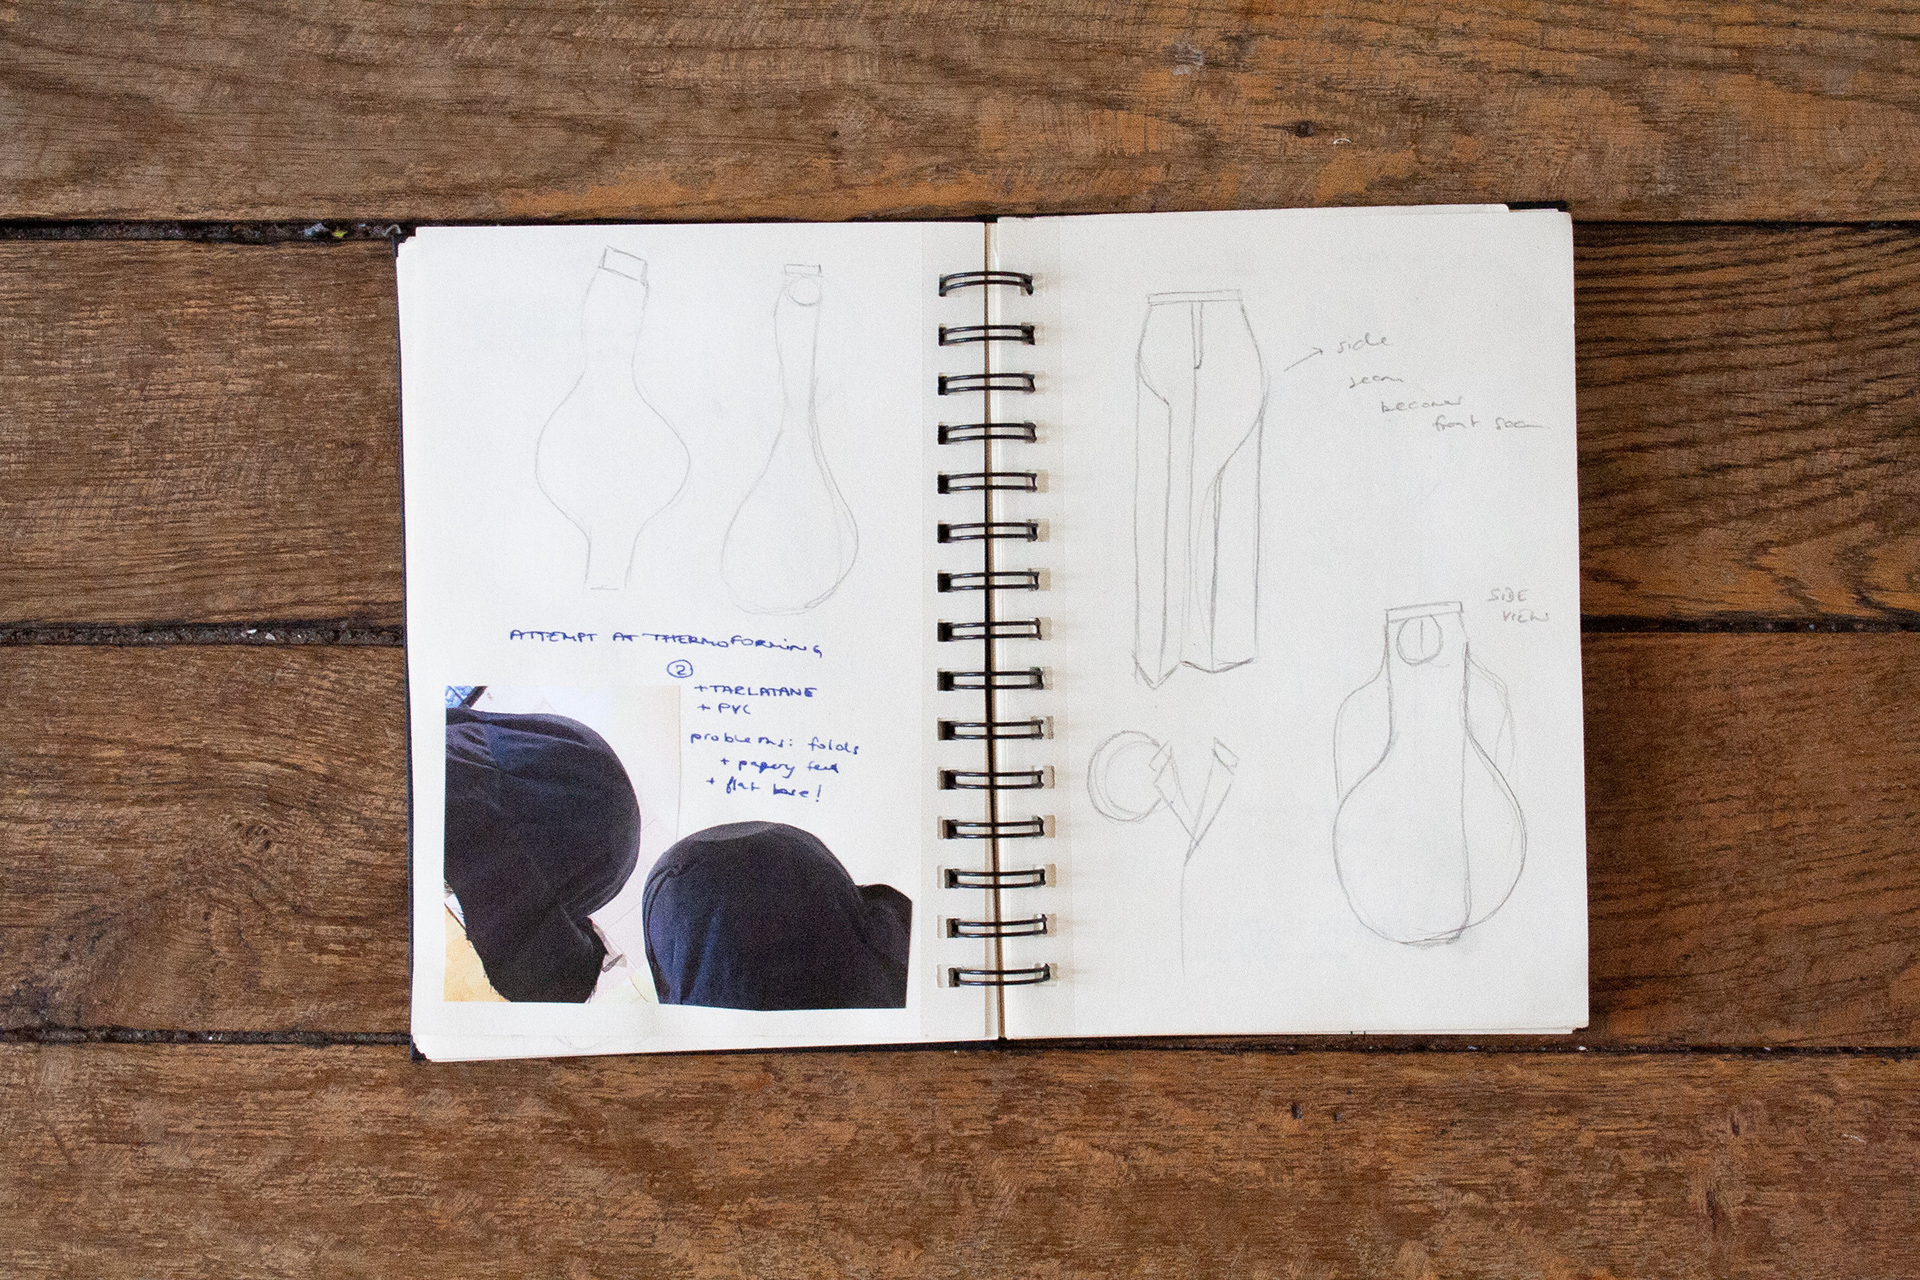 ATTEMPT AT THERMOFORMING
2
+TARLATANE
+ PVC
problems: folds
+ papery feel
+ flat base!
side
seam
becomes
front seam
SIDE
VIEW